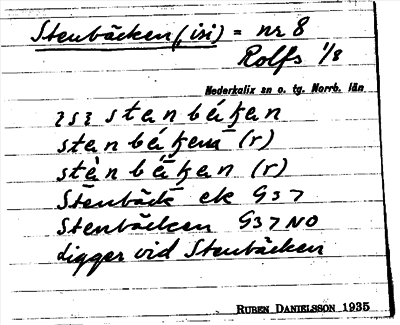 Stenbäcken (, isi) = nr 8
Rolfs 1/8
Nederkalix sn o. tg. Norrb. län
stenbäcken
stenbäcken (r)
stenbäcken (r)
Stenbäck ek G37
Stenbäcken G37 NO
Ligger vid Stenbäcken
RUBEN DANIELSSON 1935